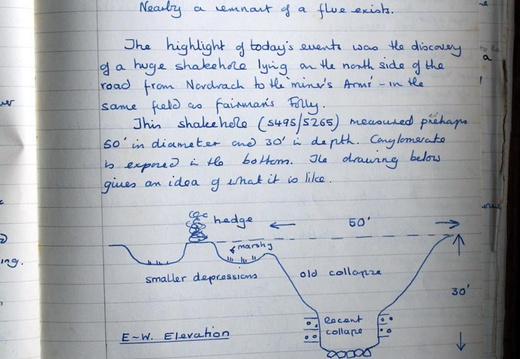 Nearby a remnant of a flue exists.
The highlight of today's events was the discovery
of a huge shakehole lying on the north side of the
road from Nordrach to the 'miner's Arms' - in the
same field as Fairman's Folly.
This shakehole (5495/5265) measured prehaps
50' in diameter and 30' in depth. Conglomerate
is exposed in the bottom. The drawing below
gives an idea of what it is like.
hedge
50'
marshy
smaller depressions
old collapse
30'
Recent
collapse
E-W. Elevation
ing.